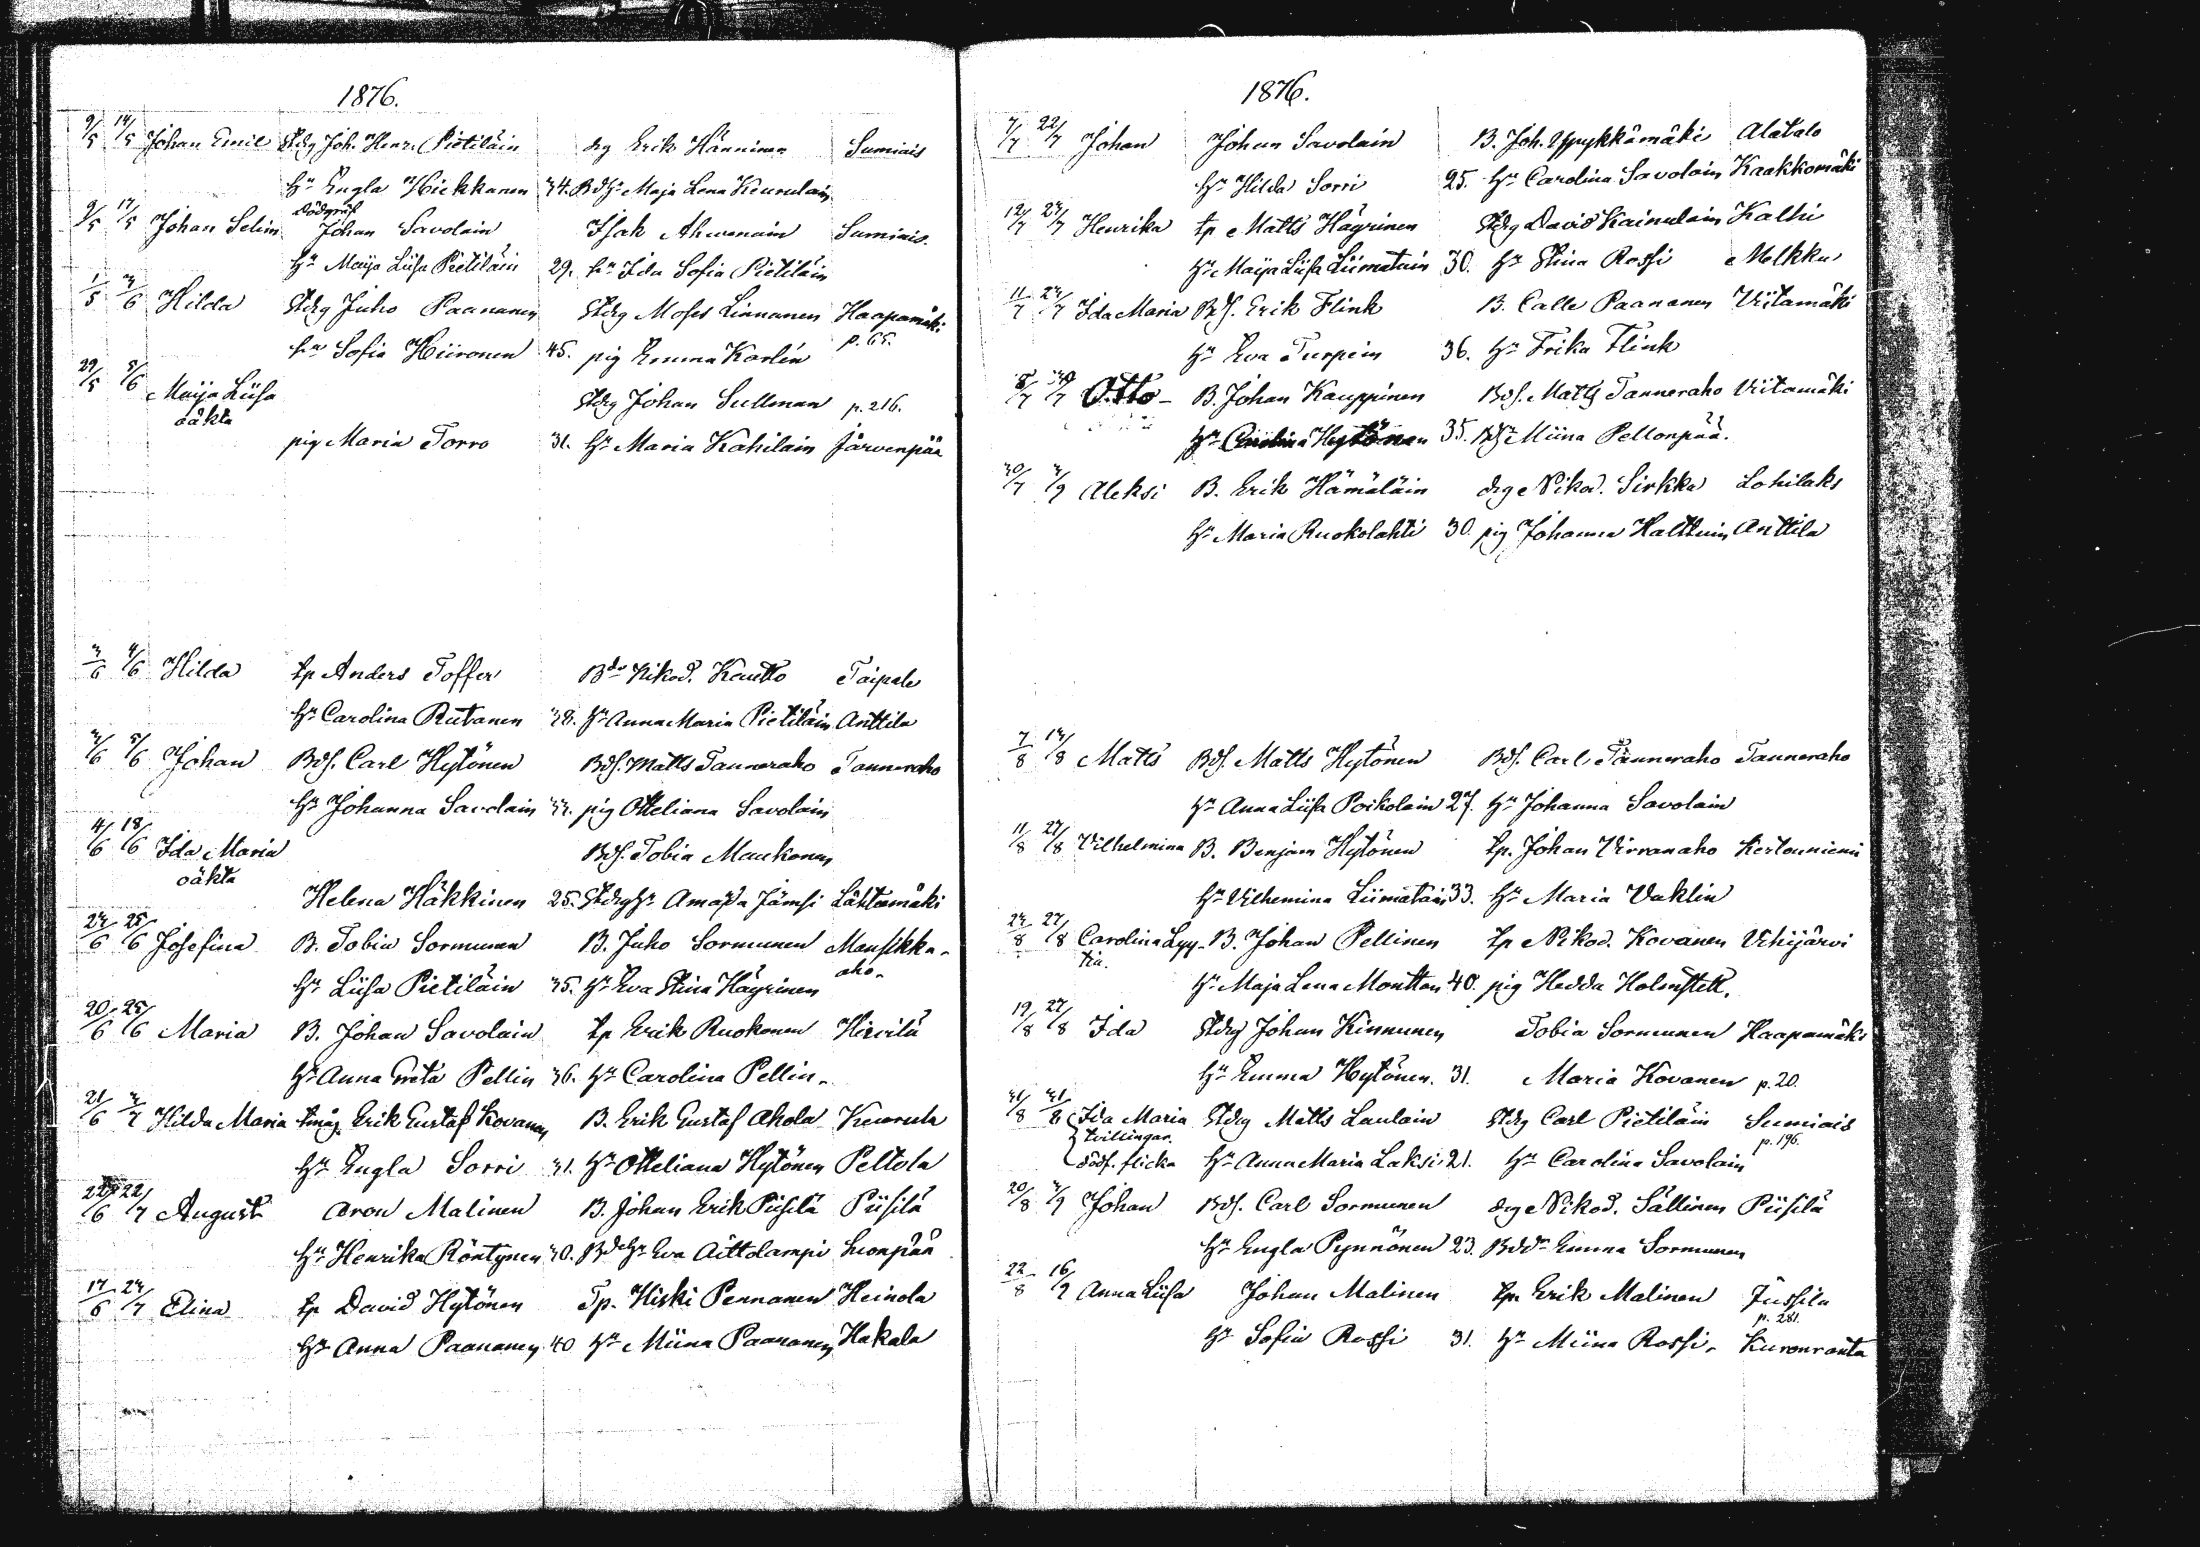 1876.
9/5 14/5 Johan Emil Stdrg Joh. Henr. Pietiläin drg Erik Hänninen Sumiais
Hu Engla Hiekkanen 34. Bdhu Maja Lena Keurulain
dödgräf
9/5 17/5 Johan Selim Johan Savolain Isak Ahvenain Sumiais.
Hu Maija Liisa Pietiläin 29. hu Ida Sofia Pietiläin
1/5 3/6 Hilda Stdrg Juho Paananen Stdrg Moses Linnanen Haapamäki
hu Sofia Hiironen 45. pig Emma Karlin p. 65.
29/5 5/6 Maija Liisa Stdrg Johan Sullman p. 216.
oäkta
pig Maria Torro 31. Hu Maria Kahilain Järvenpää
3/6 4/6 Hilda tp Anders Toffer Bde Nikod. Kautto Taipale
Hu Carolina Rutanen 38. Hu Anna Maria Pietiläin Anttila
3/6 5/6 Johan Bds. Carl Hytönen Bds. Matts Tanneraho Tanneraho
Hu Johanna Savolain 34. pig Otteliana Savolain
4/6 18/6 Ida Maria Bds. Tobia Maukonen
oäkta
Helena Häkkinen 25. Stdrghu Amanda Jämsi Lähtemäki
24/6 25/6 Josefina B. Tobia Sormunen B. Juho Sormunen Mansikka-
Hu Liisa Pietiläin 35. Hu Eva Stina Häyrinen aho.
20/6 25/6 Maria B. Johan Savolain tp Erik Ruokonen Hirvilä
Hu Anna Greta Pellin 36. Hu Carolina Pellin.
21/6 2/7 Hilda Maria tmåg Erik Gustaf Kovanen B. Erik Gustaf Ahola Keurula
Hu Engla Sorri 31. Hu Otteliana Hytönen Peltola
22/6 22/7 August Aron Malinen B. Johan Erik Piisilä Piisilä
Hu Henrika Röntynen 30. Bdehu Eva Aittolampi Suonpää
17/6 24/7 Elina tp David Hytönen Tp. Hiski Pennanen Heinola
Hu Anna Paananen 40 Hu Miina Paananen Hakala
1876.
7/7 22/7 Johan Johan Savolain B. Joh. Yspykkämäki Alatalo
Hu Hilda Sorri 25. Hu Carolina Savolain Kaakkomäki
12/7 23/7 Henrika tp Matts Häyrinen Stdrg David Kainulain Kalhi
Hu Maija Liisa Liimatain 30. Hu Stina Rossi Molkku
11/7 23/7 Ida Maria Bds. Erik Flink B. Calle Paananen Viitamäki
Hu Eva Turpein 36. Hu Frika Flink
8/7 30/7 Otto B. Johan Kauppinen Bds. Matts Tanneraho Viitamäki
Hu Carolina Hytönen 35. Bdshu Miina Pellonpää.
30/7 3/9 Aleksi B. Erik Hämäläin drg Nikod. Sirkka Lohilaks
Hu Maria Ruokolahti 30. pig Johanna Halttuin Anttila
7/8 14/8 Matts Bds. Matts Hytönen Bds. Carl Tanneraho Tanneraho
Hu Anna Liisa Poikolain 27. Hu Johanna Savolain
11/8 27/8 Vilhelmina B. Benjam Hytönen tp. Johan Virranaho Kertouniemi
Hu Vilhemina Liimatain 33. Hu Maria Vaklin
24/8 27/8 Carolina Lyy- B. Johan Pellinen tp Nikod. Kovanen Vihijärvi
tia.
Hu Maja Lena Monttan 40. pig Hedda Holmstett.
19/8 27/8 Ida Stdrg Johan Kinnunen Tobia Sormunen Haapamäki
Hu Emma Hytönen. 31. Maria Kovanen p. 20.
31/8 31/8 Ida Maria Stdrg Matts Laulain Stdrg Carl Pietiläin Sumiais
tvillingar. p. 196.
dödf. flicka Hu Anna Maria Laksi 21. Hu Carolina Savolain
20/8 3/9 Johan Bds. Carl Sormunen drg Nikod. Sällinen Piisilä
Hu Engla Pynnönen 23. Bddr Emma Sormunen
22/8 16/9 Anna Liisa Johan Malinen tp. Erik Malinen Jussila
p. 281.
Hu Sofia Rossi 31. Hu Miina Rossi. Kuronranta